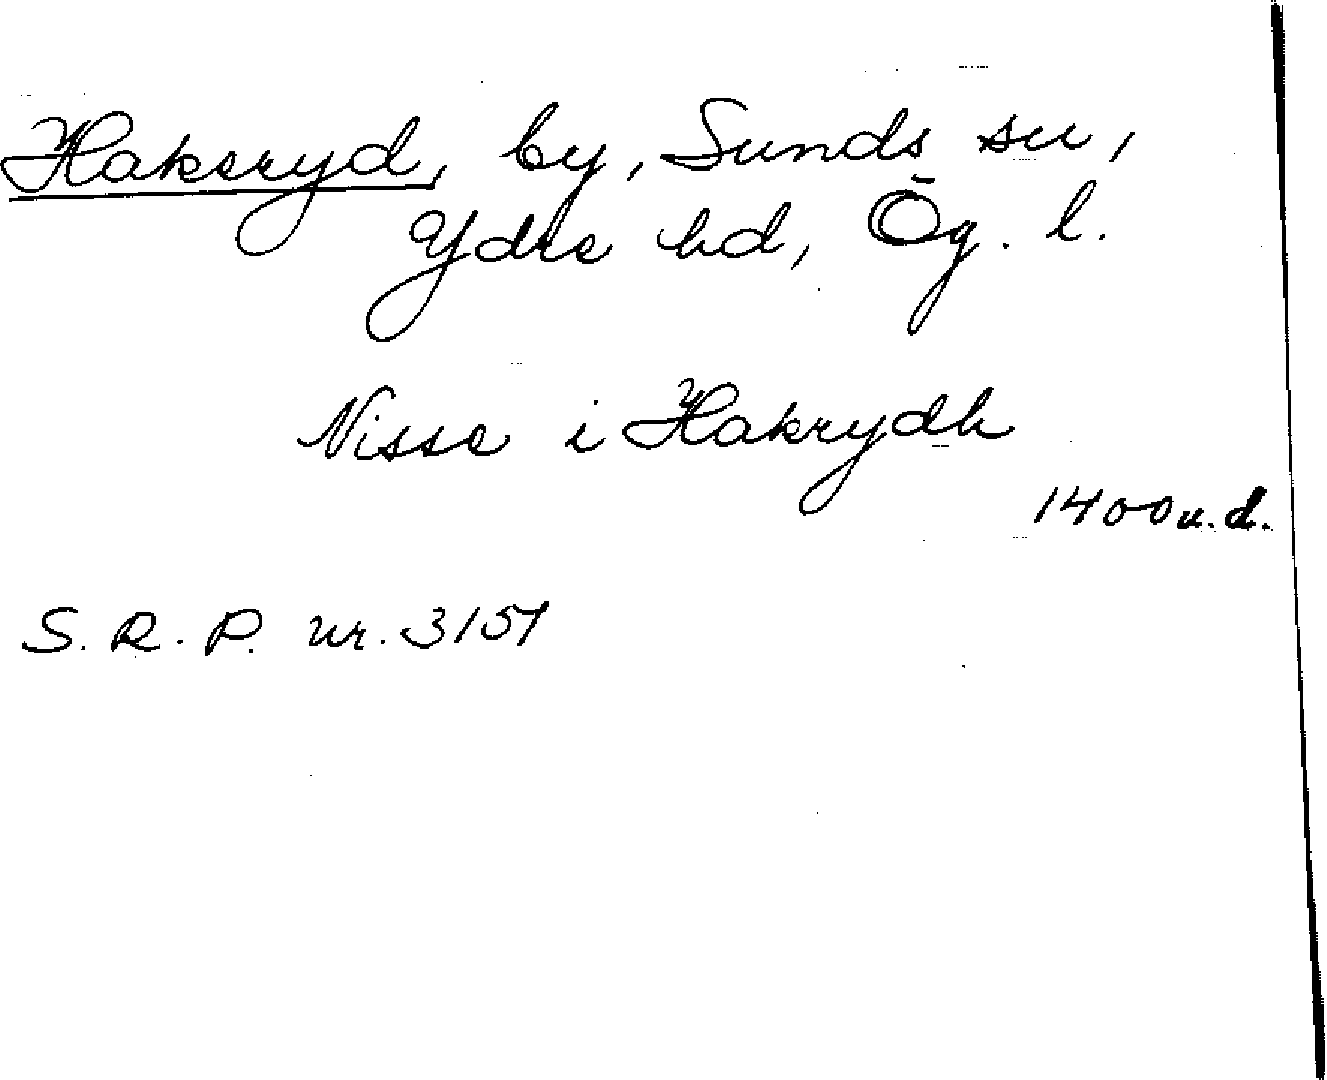 Hakeryd, by, Sunds sn,
Ydre hd, Ög. l.
Nisse i Hakrydh
1400 u.d.
S. R. P. nr. 3151